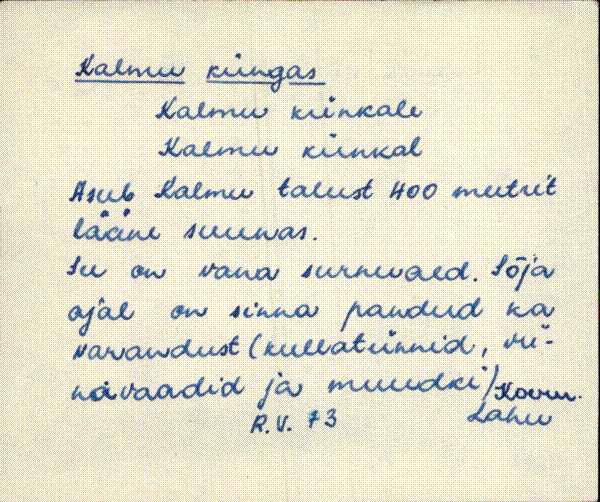 Kalmu küngas
Kalmu künkale
Kalmu künkal
Asub Kalmu talust 400 meetrit
lääne suunas.
Su on vana surnuaed. Sõja
ajal on sinna pandud ka
varandust (kullatünnid, vii-
navaadid ja muudki) Koeru.
R.V. 73 Lahu